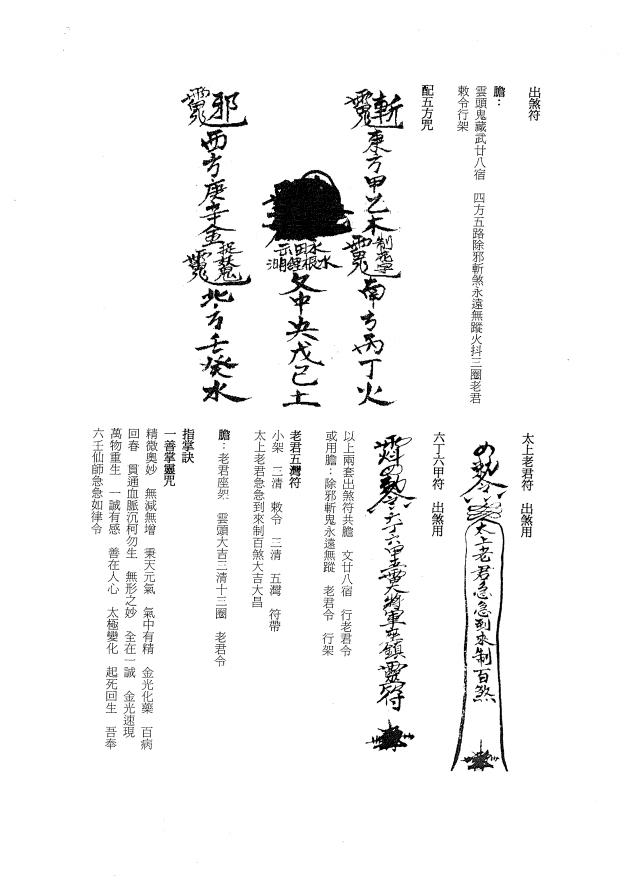 出煞符
膽：
雲頭鬼藏武廿八宿　四方五路除邪斬煞永遠無蹤火抖三圈老君
敕令行架
配五方咒
斬
東方甲乙木
制邪字
南方丙丁火
水
田
中央戊己土
邪
西方庚辛金
捉
北方壬癸水
太上老君符　出煞用
太上老君急急到來制百煞
六丁六甲符　出煞用
六丁六甲五雷大將軍在鎮靈符
以上兩套出煞符共膽　文廿八宿　行老君令
或用膽：除邪斬鬼永遠無蹤　老君令　行架
老君五灣符
小架　三清　敕令　三清　五灣　符帶
太上老君急急到來制百煞大吉大昌
膽：老君座架　雲頭大吉三清十三圈　老君令
指掌訣
一善掌靈咒
精微奧妙　無減無增　秉天元氣　氣中有精　金光化藥　百病
回春　貫通血脈沉柯勿生　無形之妙　全在一誠　金光速現
萬物重生　一誠有感　善在人心　太極變化　起死回生　吾奉
六壬仙師急急如律令